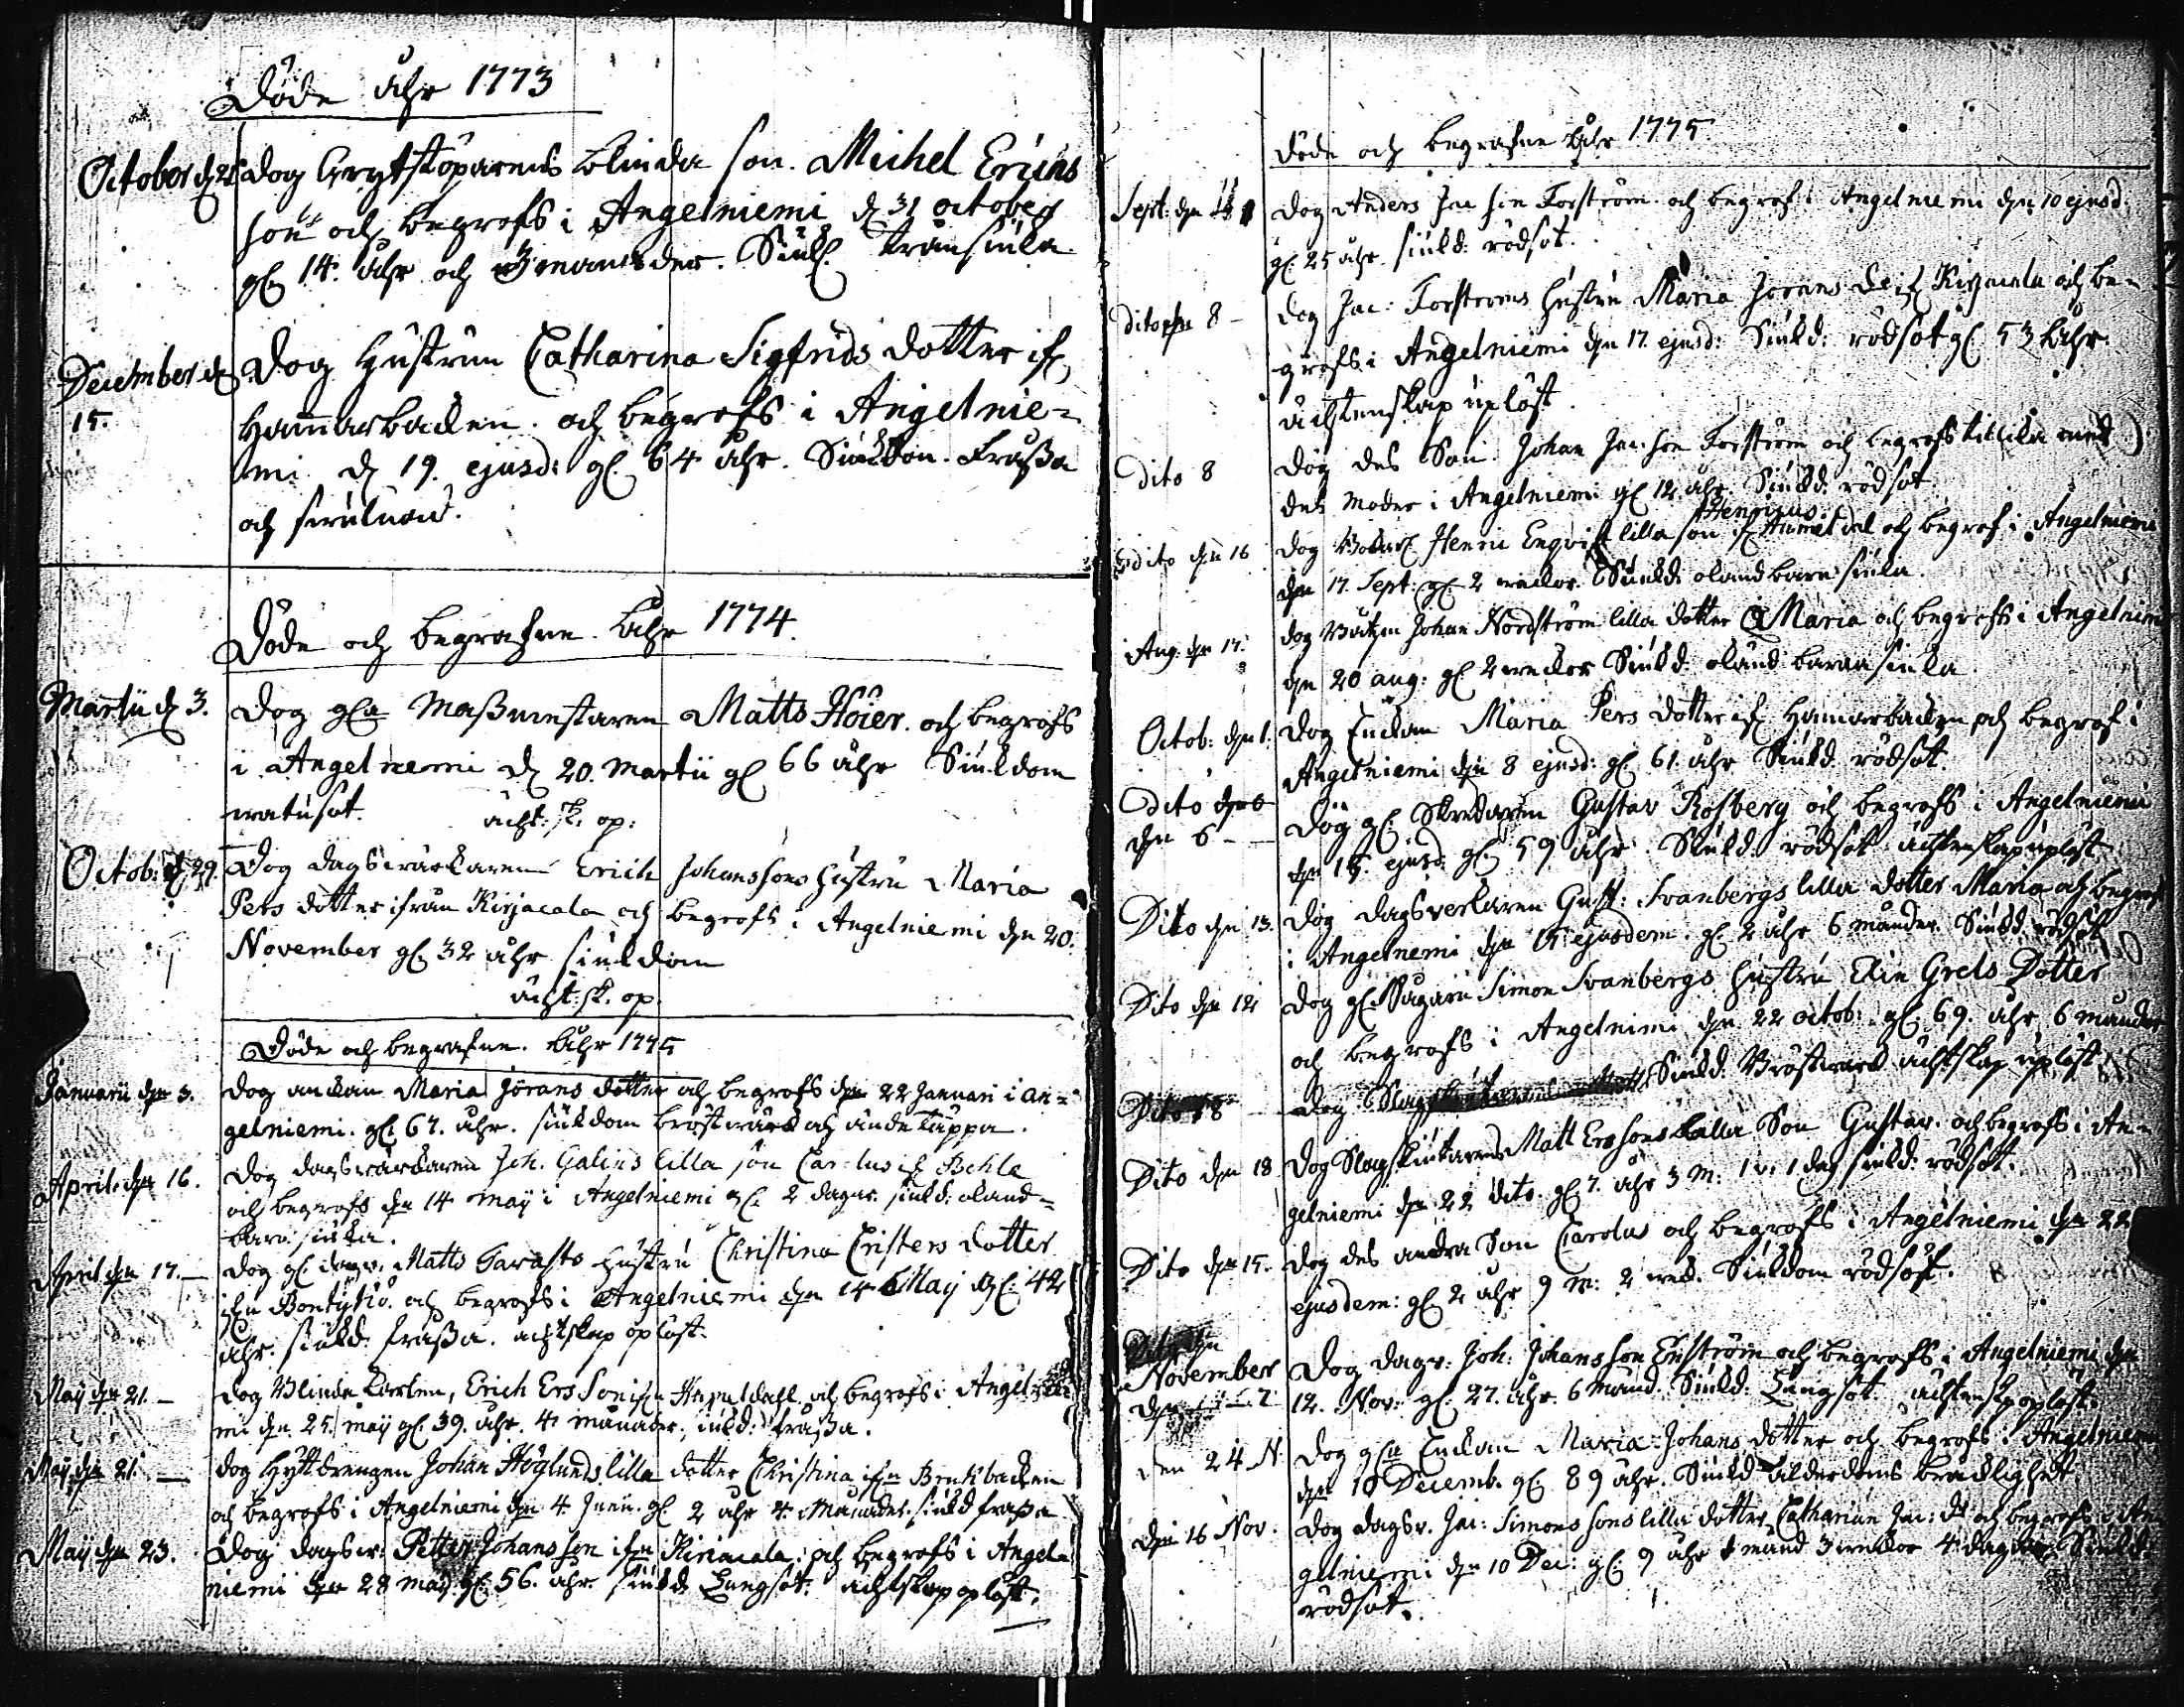 Döde åhr 1773
October d 25 Dog Grytstöparens blinda son. Michel Erichs
son och begrofs i Angelniemi d 31 october
gl 14. åhr och 3 månader. Siukd. Transiuka
December d 15. Dog Hustrun Catharina Sigfrids dotter ifr
Hammarbacken. och begrofs i Angelnie=
mi d 19. ejusd: gl. 64 åhr. Siukdom. Frassa
och
Döde och begrafne åhr 1774.
Martii d 3. Dog gla Masmestaren Matts Höier. och begrofs
i Angelniemi d 20. Martii gl 66 åhr Siukdom
watusot. ächt: sk. op:
Octob: d 29. Dog dagswärckaren Erich Johanssons hustru Maria
Pers dotter ifrån Kirjacala och begrofs i Angelniemi den 20.
November gl. 32 åhr siukdom
ächt: sk. op.
Döde och begrafne. åhr 1775
Januarii den 3. Dog änckan Maria Jörans dotter och begrofs den 22 Januari i An=
gelniemi. gl. 67. åhr. siukdom bröstwärck och andetäppa.
April. den 16. Dog dagswärckaren Joh. Galins lilla son Carolus ifr
och begrofs den 14 may i Angelniemi gl. 2 dagar. siukd. okänd=
barn siuka.
April den 17. Dog gl dagsv. Matts Tarasto hustru Christina Cristers dotter
ifrn och begrofs i Angelniemi den 14 May gl. 42
åhr. siukd. frassa. ächtskap oplöst.
May den 21. Dog Blinda Karlen, Erich Ersson ifrn och begrofs i Angelnie
mi den 25. may gl. 39. åhr. 4 månader. siukd: frassa.
May den 21. Dog Hyttdrengen Johan Höglunds lilla dotter Christina ifrn Brukbacken
och begrofs i Angelniemi den 4. Junii. gl 2 åhr 4. Månader. siukd frassa
May den 23. Dog dagsv: Petter Johansson ifrn Kiriacala. och begrofs i Angel
niemi den 28 may. gl. 56. åhr. siukd. Lungsot. ächtskap oplöst.
Döde och begrafne åhr 1775
Sept. den Dog Anders Jac son Forström. och begrof i Angelniemi den 10 ejusd.
gl. 25 åhr. siukd: rödsot.
dito den 8 Dog Jac: Forstroms hustru Maria Jörans d. ifr Kirjacala och be=
grofs i Angelniemi den 17. ejusd: Siukd: rödsot gl. 53 åhr.
ächtenskap uplöst.
dito 8 Dog des Son. Johan Jac: son Forström och begrofs tillika med
des moder i Angelniemi gl 12 åhr Siukd: rödsot.
dito den 16 Dog Henric Enqvist lilla son Henricus och begrof i Angelniemi
den 17. Sept: gl. 2 weckor. Siukd: okänd barnsiuka.
Aug. den 17. Dog Johan Nordström lilla dotter Maria och begrofs i Angelniemi
den 20 aug: gl 2 weckor Siukd: okänd barnasiuka
Octob: den 1. Dog Enckan Maria Pers dotter ifr Hamarbacken och begrof i
Angelniemi den 8 ejusd: gl. 61. åhr Siukd. rödsot.
dito den 6
den 6 Dog gl. Skredaren Gustav Rosberg och begrofs i Angelniemi
den 15. ejusd. gl. 59 åhr. Siukd. rödsot ächtenskap uplöst.
Dito den 13. Dog dagsverkaren Gust: Svanbergs lilla dotter Maria och begrof
i Angelnemi den 15 ejusdem. gl. 2 åhr 6 månder. Siukd. rödsot
Dito den 12 Dog gl. Simon Svanbergs hustru Elin Grels Dotter
och begrofs i Angelnimi den 22 octob: gl. 69. åhr 6 månder
Siukd. Bröstwerck ächtskap uplöst
Dito 18 Dog
Dito den 18 Dog Matt Erssons lilla Son Gustav. och begrofs i An=
gelniemi den 22 dito. gl. 7. åhr 3 m: 1 v. 1 dag siukd: rödsot.
Dito den 15. Dog des andra Son Carolus och begrofs i Angelniemi den 22
ejusdem: gl 2 åhr 9 m: 2 wec. Siukdom rödsot.
November
den 7 Dog dagsv: Joh: Johansson Enström och begrofs i Angelniemi den
12. Nov: gl. 27. åhr. 6 månd. Siukd: Lungsot. ächtenskp oplöst.
den 24 N. Dog gla Enckan Maria Johans dotter och begrofs i Angelniemi
den 10 Decemb. gl. 89 åhr. Siukd ålderdoms bräcklighet
den 16 Nov. Dog dagsv. Jac: Simonssons lilla dotter Catharina Jac: d och begrofs i An
gelniemi den 10 Dec: gl. 9 åhr månd 3 weckor 4 dagar. Siukd:
rödsot.